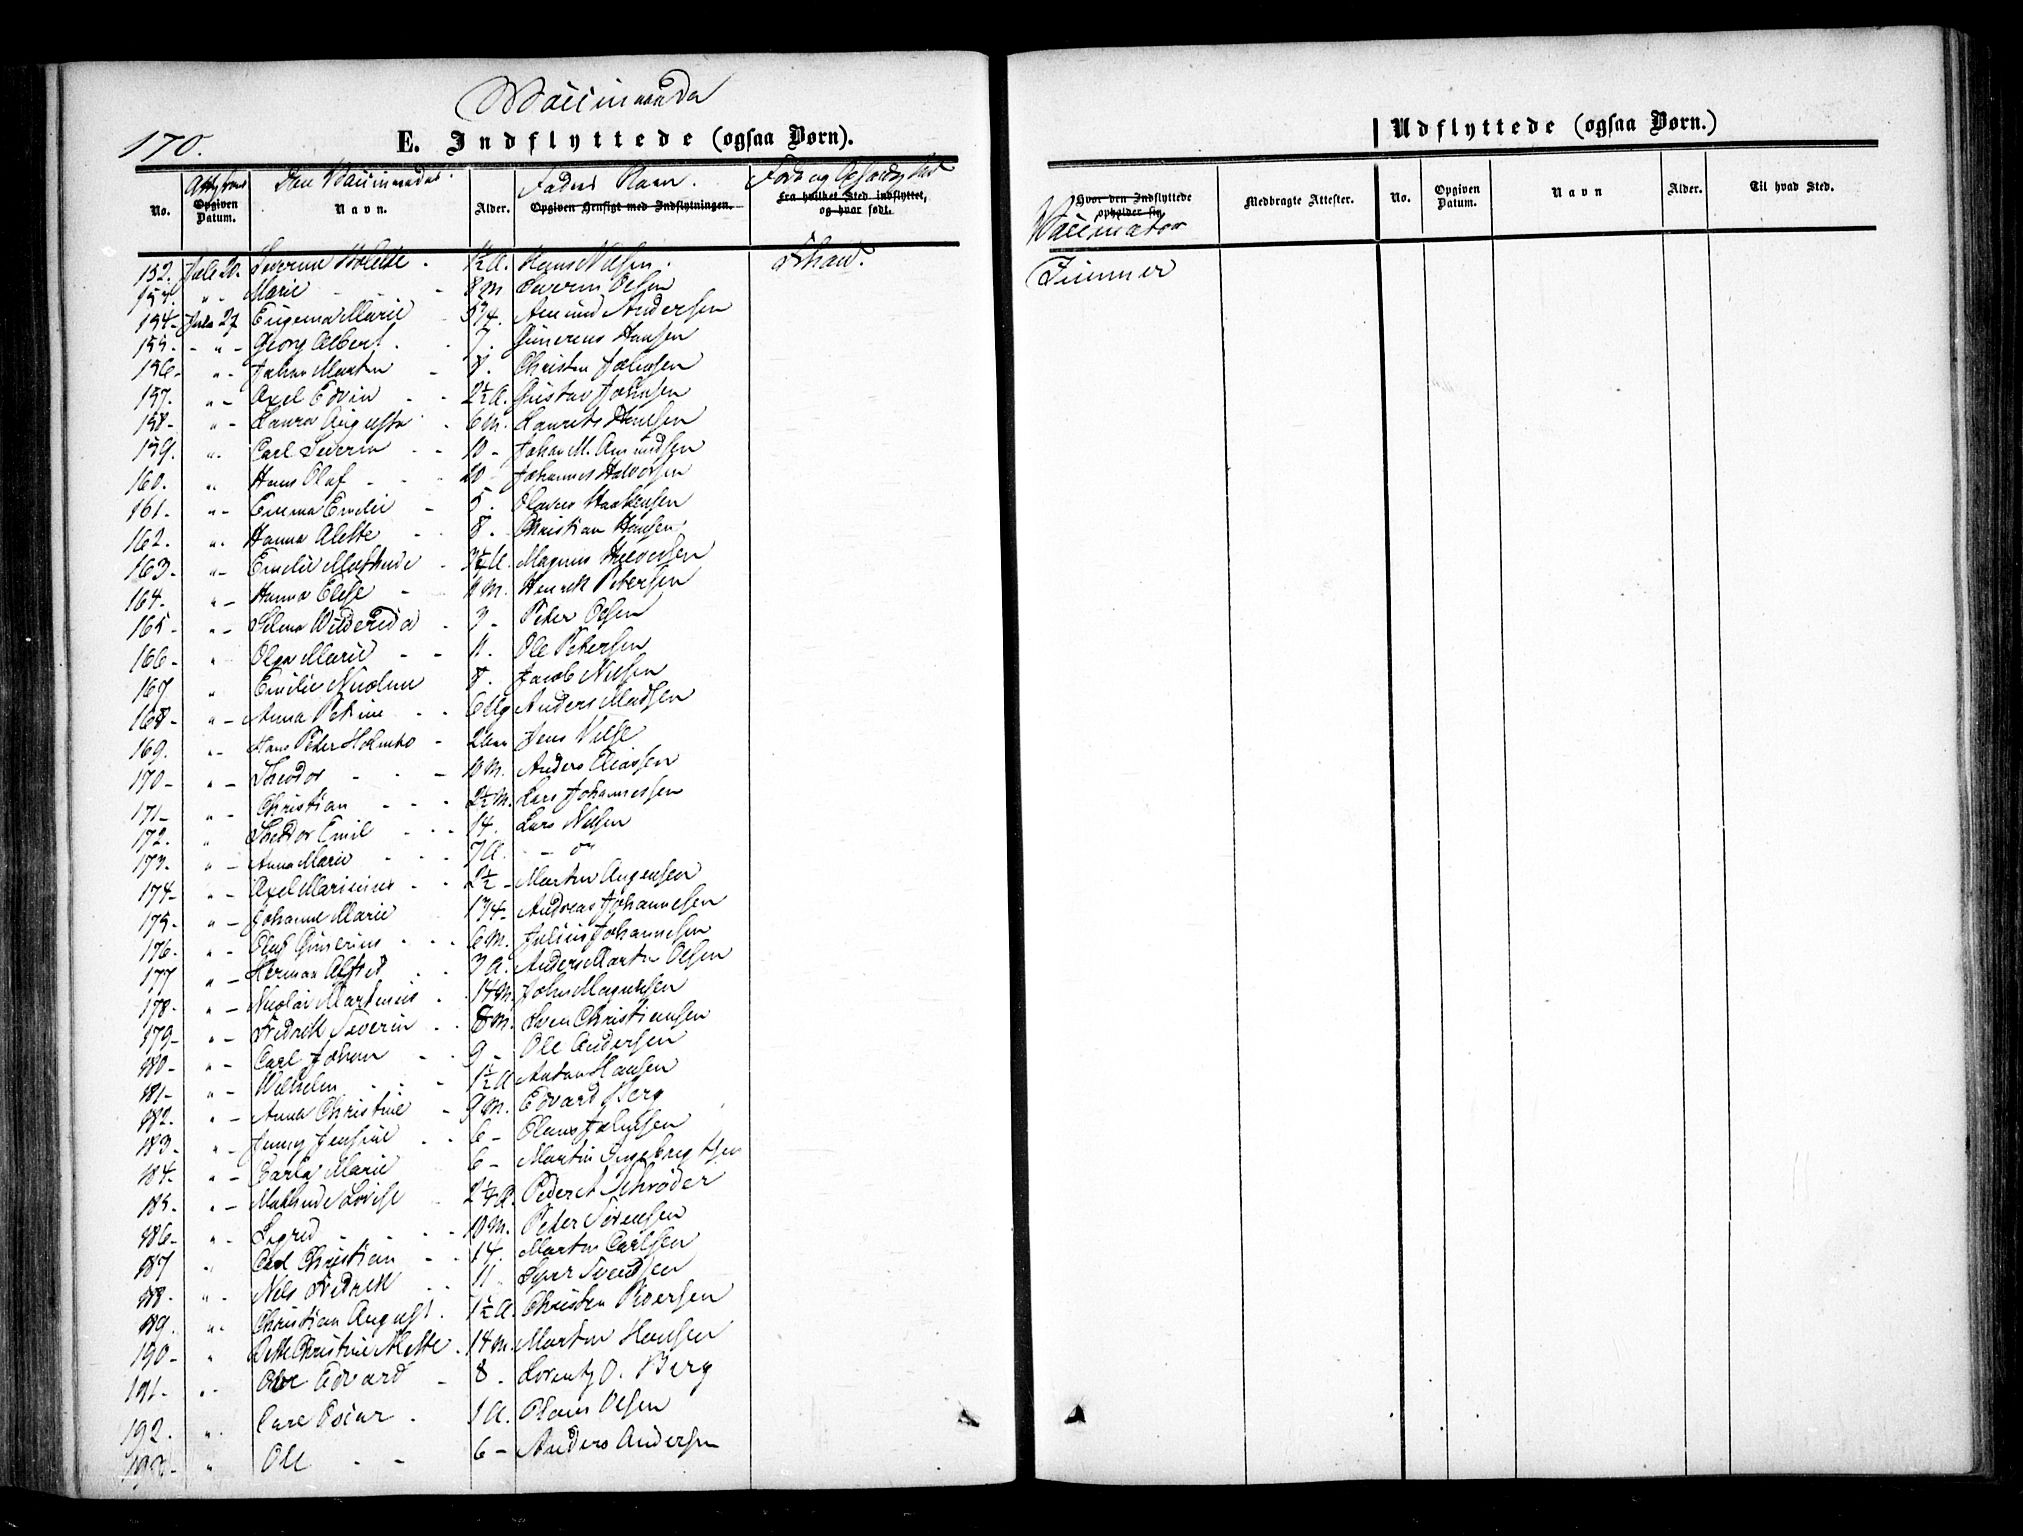 Vaccinerede
170.
E. Indflyttede (ogsaa Børn).
Udflyttede (ogsaa Børn.)
No. Opgiven Datum. Den Vaccineredes Navn. Alder. Faders Navn. Opgiven Hensigt med Indflytningen. Føde og Opholds Sted fra hvilket Sted indflyttet, og hvor født.
Hvor den Indflyttede opholder sig. Vaccinator Medbragte Attester. No. Opgiven Datum. Navn Alder. Til hvad Sted.
152. Juli 20. Severine Holette 1½ A. Hans Nilsen.
Timmer
153. " Marie 8 M Severin Olsen
154 - Juli 27 Eugenia Marie 5/4. Amund Andersen
155. - " - Georg Albert. 7. Gunerius Hansen
156 - " - Johan Martin 8. Christen Johnsen
157. " - Axel Edvin 2½ A. Gustav Johnsen
158 - " - Laura Augusta 6 M. Laurits Paulsen
159. " Carl Severin 10 - Johan M. Amundsen
160. " Hans Olaf 20 Johannes Halvorsen
161 - " - Emma Emilie 5. Olaves Haakensen
162. " Hanna Alette 8. Christian Hansen
163 - " - Emilie Mathude 3½ A. Magnus Halvorsen
164. " - Hanna Elise 11 M. Henrik Petersen
165 - " - Selma Wilderida 3 - Peter Olsen
166 - " Olga Marie 11. Ole Petersen
167. " Emilie Nicoline 8. Jacob Nilsen
168 - " - Anna Petrine 6 Ug Anders Madsen
169. " - Hans Peter Holmbo 2 Aar Jens Vilse
170 - " - Theodor 10 M. Anders Eliassen
171 - " - Christian 2½ M. Lars Johannessen
172. " Theodor Emil 14. Lars Nilsen
173. " - Anna Marie 7 A. - " -
174 - " - Axel Marinius 2½ - Martin Augensen
175. " - Johanne Marie 1 3/4 - Andreas Johannesen
176 - " - Oluf Gunerius 6 M. Julius Johannesen
177 " - Herman Alfred 3 A. Anders Martin Olsen
178 - " - Nicolai Martinius 14 M John Magnussen
179 - " - Fredrik Severin 8 M. Sven Christiansen
180 - " - Carl Johan 9 - Ole Andersen
181 - " - Wilhelm 1½ A Anton Hansen
182. " - Anna Christine 9 M. Edvard Berg
183 - " - Jenny Jensine 6 - Olaus Johnsen
184 - " - Carla Marie 6 - Martin Ingebrigtsen
185. " - Mathude Lovise 2¼ A. Peder A Schrøder
186 - " - Sigrid 10 M. Peder Sørensen
187 " Carl Christian 14. Martin Carlsen
188. " - Nils Fredrik 11 Syver Svendsen
189. " Christian August. 1½ A. Christen Iversen
190 - " Christine Alette 14 M Martin Hansen
191 - " Ole Edvard 8. Lorentz O. Berg
192. " Carl Oscar. 1 A. Olaus Olsen
193 - " Ole 6 - Anders Andersen